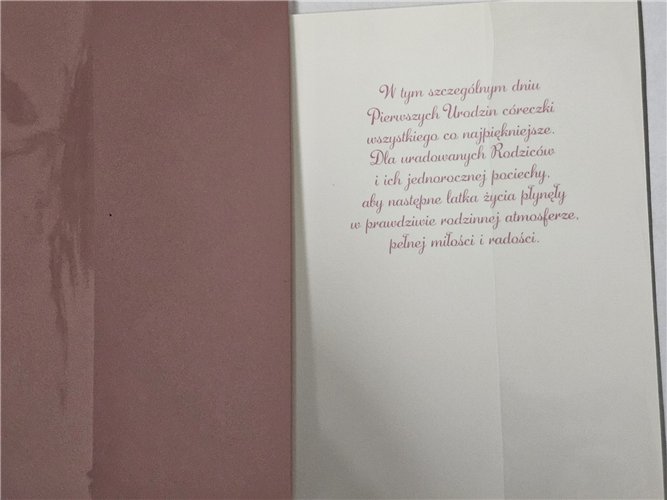 W tym szczególnym dniu
Pierwszych Urodzin córeczki
wszystkiego co najpiękniejsze.
Dla uradowanych Rodziców
i ich jednorocznej pociechy,
aby następne latka życia płynęły
w prawdziwie rodzinnej atmosferze,
pełnej miłości i radości.